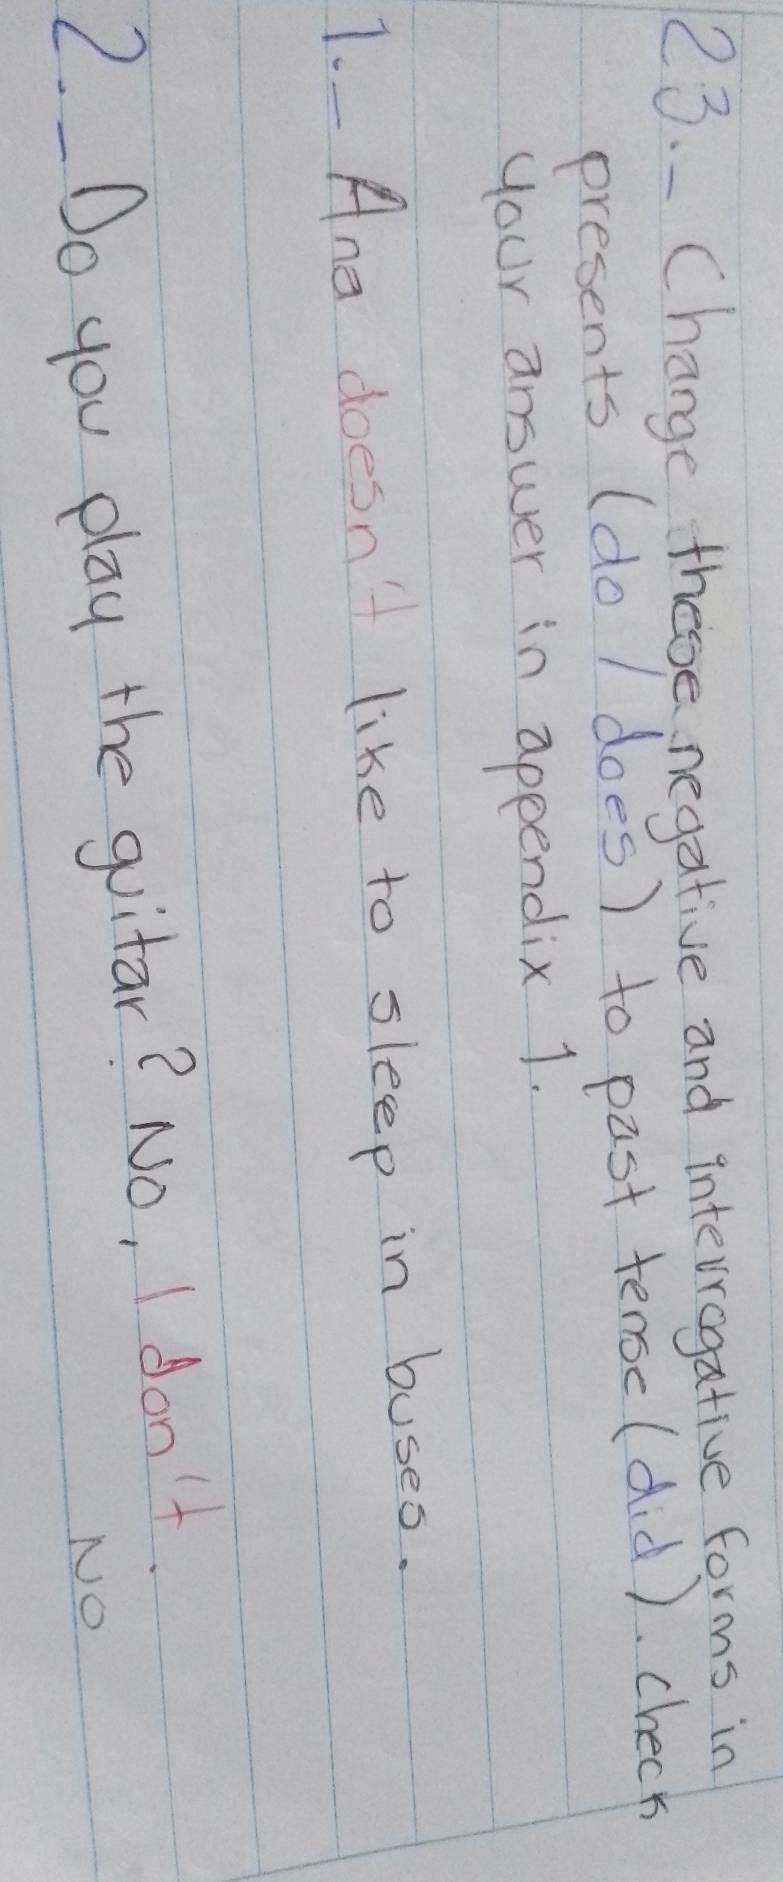 23.- Change these negative and interrogative forms in
presents (do / does) to past tense (did). check
your answer in appendix 1.
1.- Ana doesn't like to sleep in buses.
2.- Do you play the guitar? No, I don't.
No